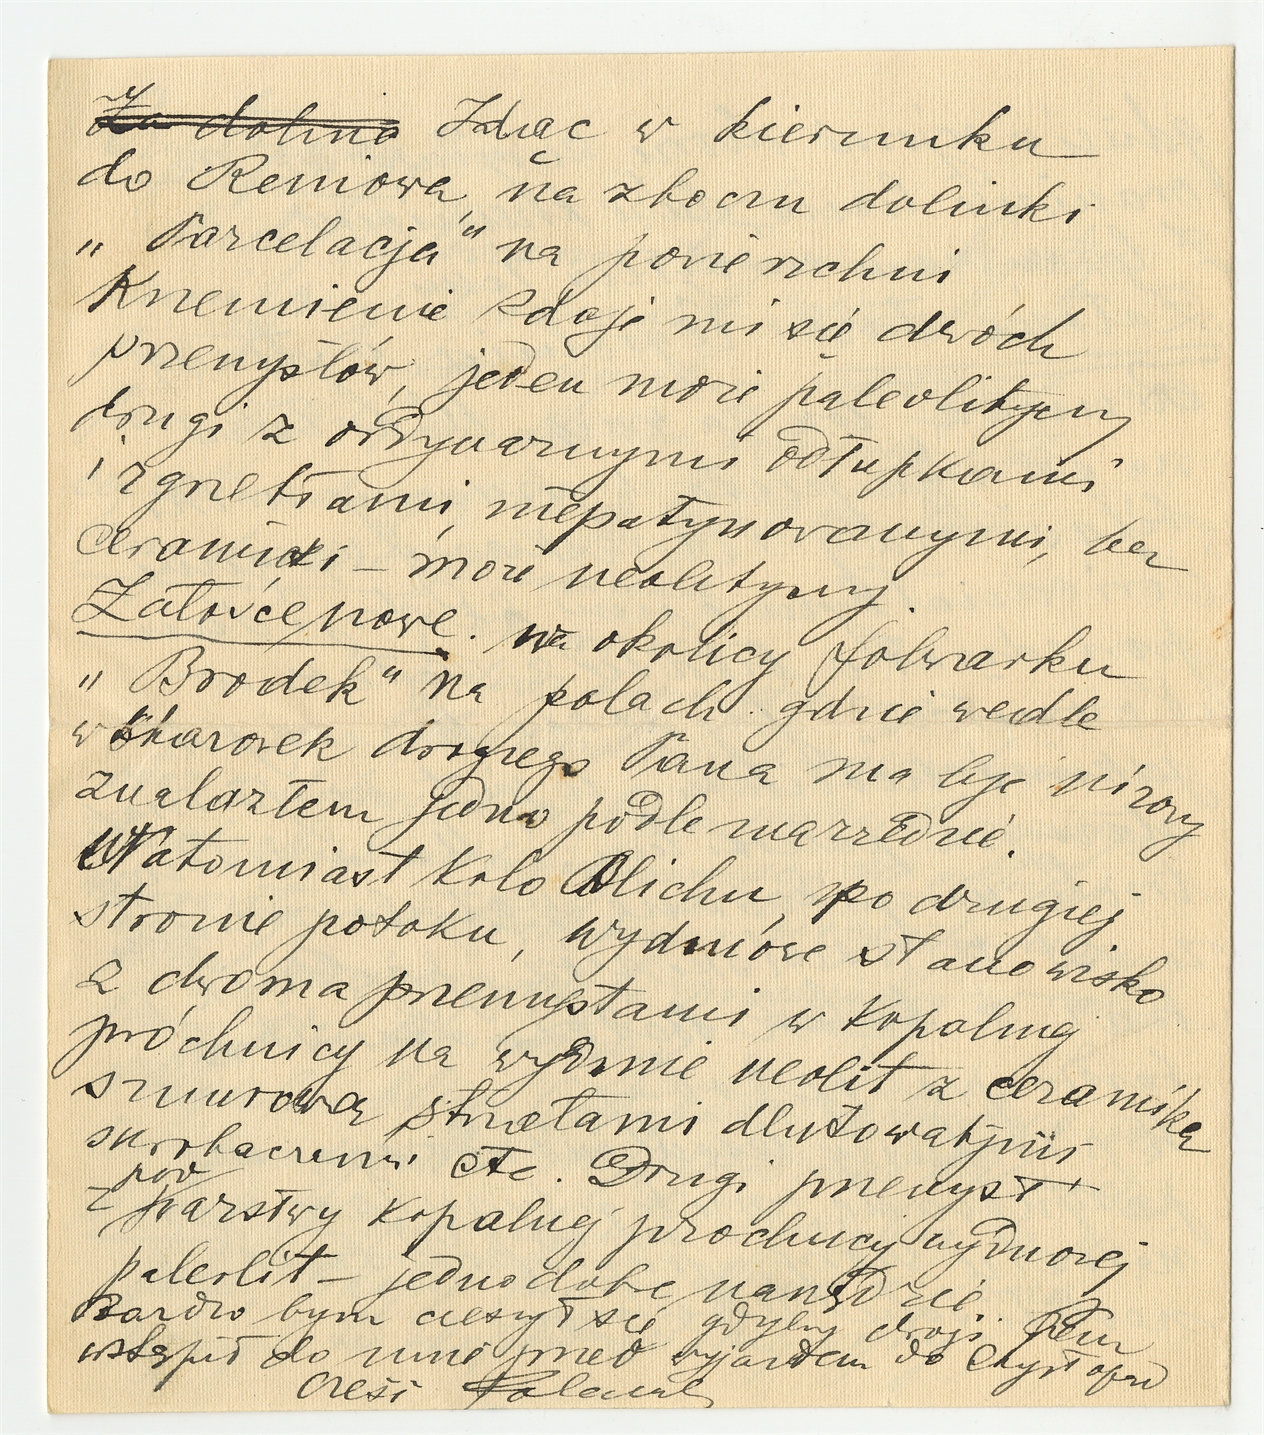 ~~Za dolino~~ Idąc w kierunku
do Reniowa, na zboczu dolinki
„Parcelacja" na powierzchni
Krzemienie zdaje mi się dwóch
przemysłów, jeden może paleolityczny
drugi z ordynarnymi odłupkami
i zgrzebłami, niepatynowanymi, bez
ceramiki – może neolityczny.
Załoźce nowe. na okolicy folwarku
„Brodek" na polach gdzie wedle
wskazówek drogiego Pana ma być
znalazłem jedno podłe narzędzie.
Natomiast koło Blichu, po drugiej
stronie potoku, wydmowe stanowisko
z dwoma przemysłami w kopalnej
próchnicy na wydmie neolit z ceramiką
sznurową strzałami dłutowatymi
skrobaczemi etc. Drugi przemysł
z pod warstwy kopalnej prochnicy wydmowej
paleolit – jedno dobre narzędzie.
Bardzo bym cieszył się gdyby drogi Pan
wstąpił do mnie przed wyjazdem do
Cześć